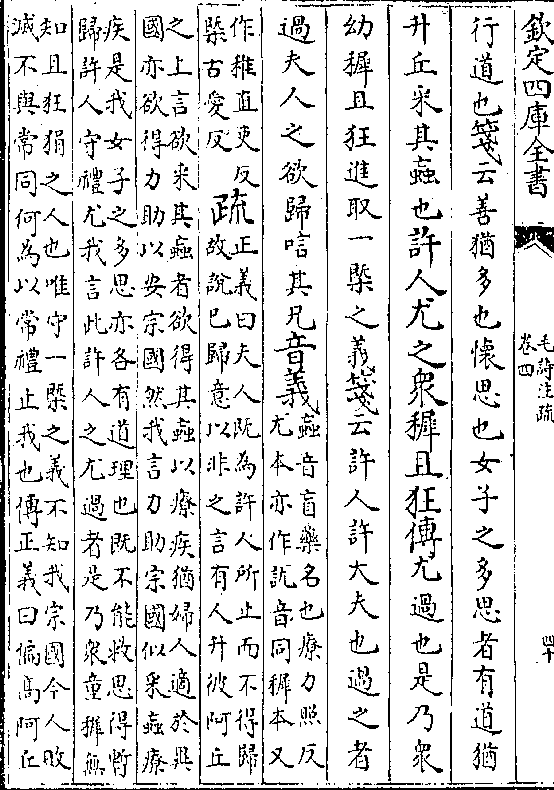 欽定四庫全書
毛詩注疏
卷四
四十
行道也箋云善猶多也懷思也女子之多思者有道猶
升丘采其蝱也許人尤之衆穉且狂傳尤過也是乃衆
幼穉且狂進取一槩之義箋云許人許大夫也過之者
過夫人之欲歸唁其兄音義
蝱音盲藥名也療力照反
尤本亦作訧音同穉本又
作稚直吏反
槩古愛反
疏
正義曰夫人既為許人所止而不得歸
故說已歸意以非之言有人升彼阿丘
之上言欲采其蝱者欲得其蝱以療疾猶婦人適於異
國亦欲得力助以安宗國然我言力助宗國似采蝱療
疾是我女子之多思亦各有道理也既不能救思得暫
歸許人守禮尤我言此許人之尤過者是乃衆童穉無
知且狂狷之人也唯守一槩之義不知我宗國今人敗
滅不與常同何為以常禮止我也傳正義曰偏高阿丘